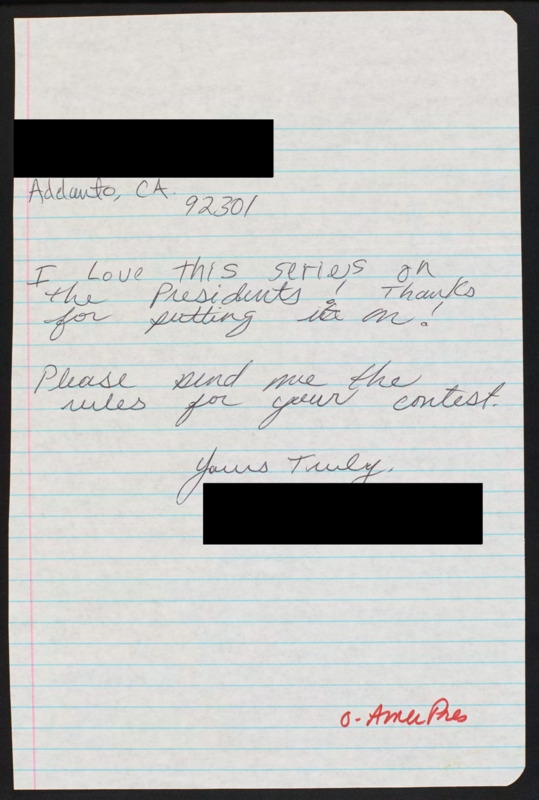 Addanto, CA.
92301
I Love this series on
the Presidents! Thanks
for putting it on!
Please send me the
rules for your contest.
Yours Truly,
O-AmerPres